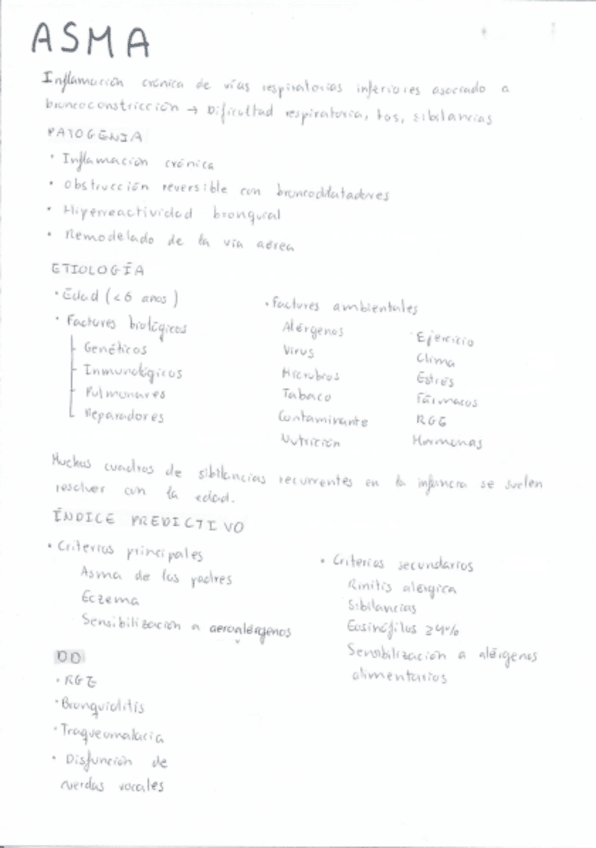 ASMA
Inflamación crónica de vías respiratorias inferiores asociado a
broncoconstricción → Dificultad respiratoria, tos, sibilancias
PATOGENIA
· Inflamación crónica
· Obstrucción reversible con broncodilatadores
· Hiperreactividad bronquial
· Remodelado de la vía aérea
ETIOLOGÍA
· Edad (<6 años)
· Factores biológicos
Genéticos
Inmunológicos
Pulmonares
Reparadores
· Factores ambientales
Alérgenos
Virus
Microbios
Tabaco
Contaminante
Nutrición
Ejercicio
Clima
Estrés
Fármacos
RGE
Hormonas
Muchos cuadros de sibilancias recurrentes en la infancia se suelen
resolver con la edad.
ÍNDICE PREDICTIVO
· Criterios principales
Asma de los padres
Eczema
Sensibilización a aeroalérgenos
· Criterios secundarios
Rinitis alérgica
Sibilancias
Eosinófilos ≥4%
Sensibilización a alérgenos
alimentarios
DD
· RGE
· Bronquiolitis
· Traqueomalacia
· Disfunción de
cuerdas vocales